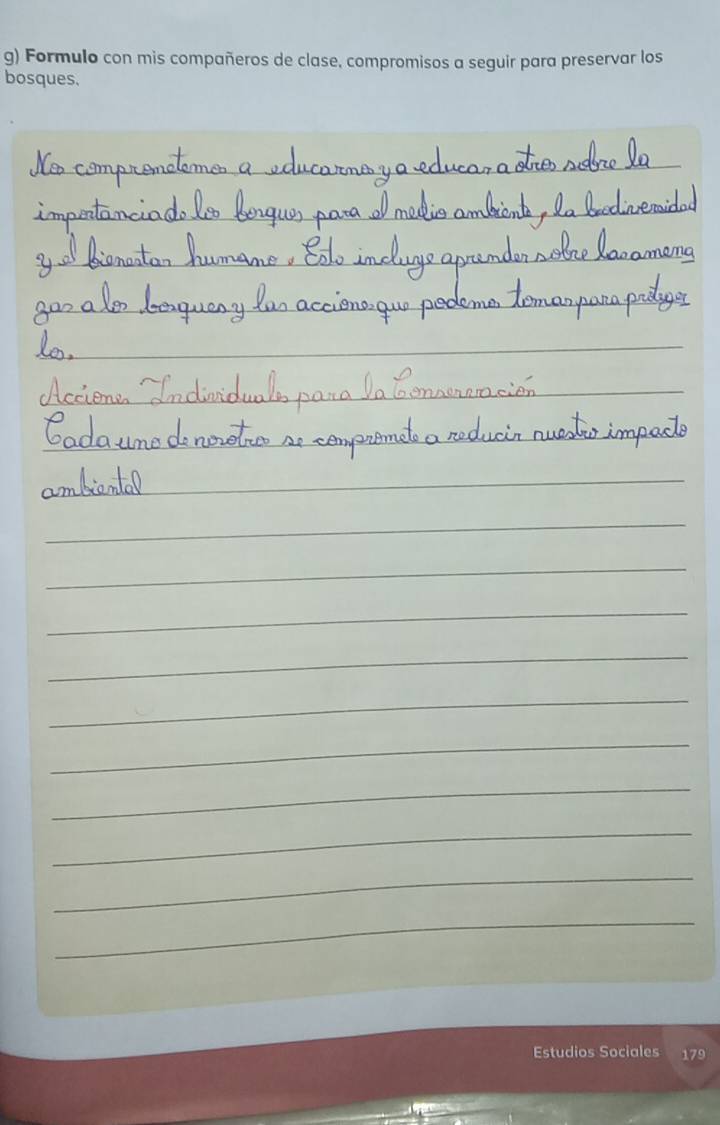 g) Formulo con mis compañeros de clase, compromisos a seguir para preservar los
bosques.
Nos comprometemos a educarnos y a educar a otros sobre la
importancia de los bosques para el medio ambiente, la biodiversidad
y el bienestar humano. Esto incluye aprender sobre las amena
zas a los bosques y las acciones que podemos tomar para proteger
los.
Acciones Individuales para la Conservación
Cada uno de nosotros se compromete a reducir nuestro impacto
ambiental
Estudios Sociales 179